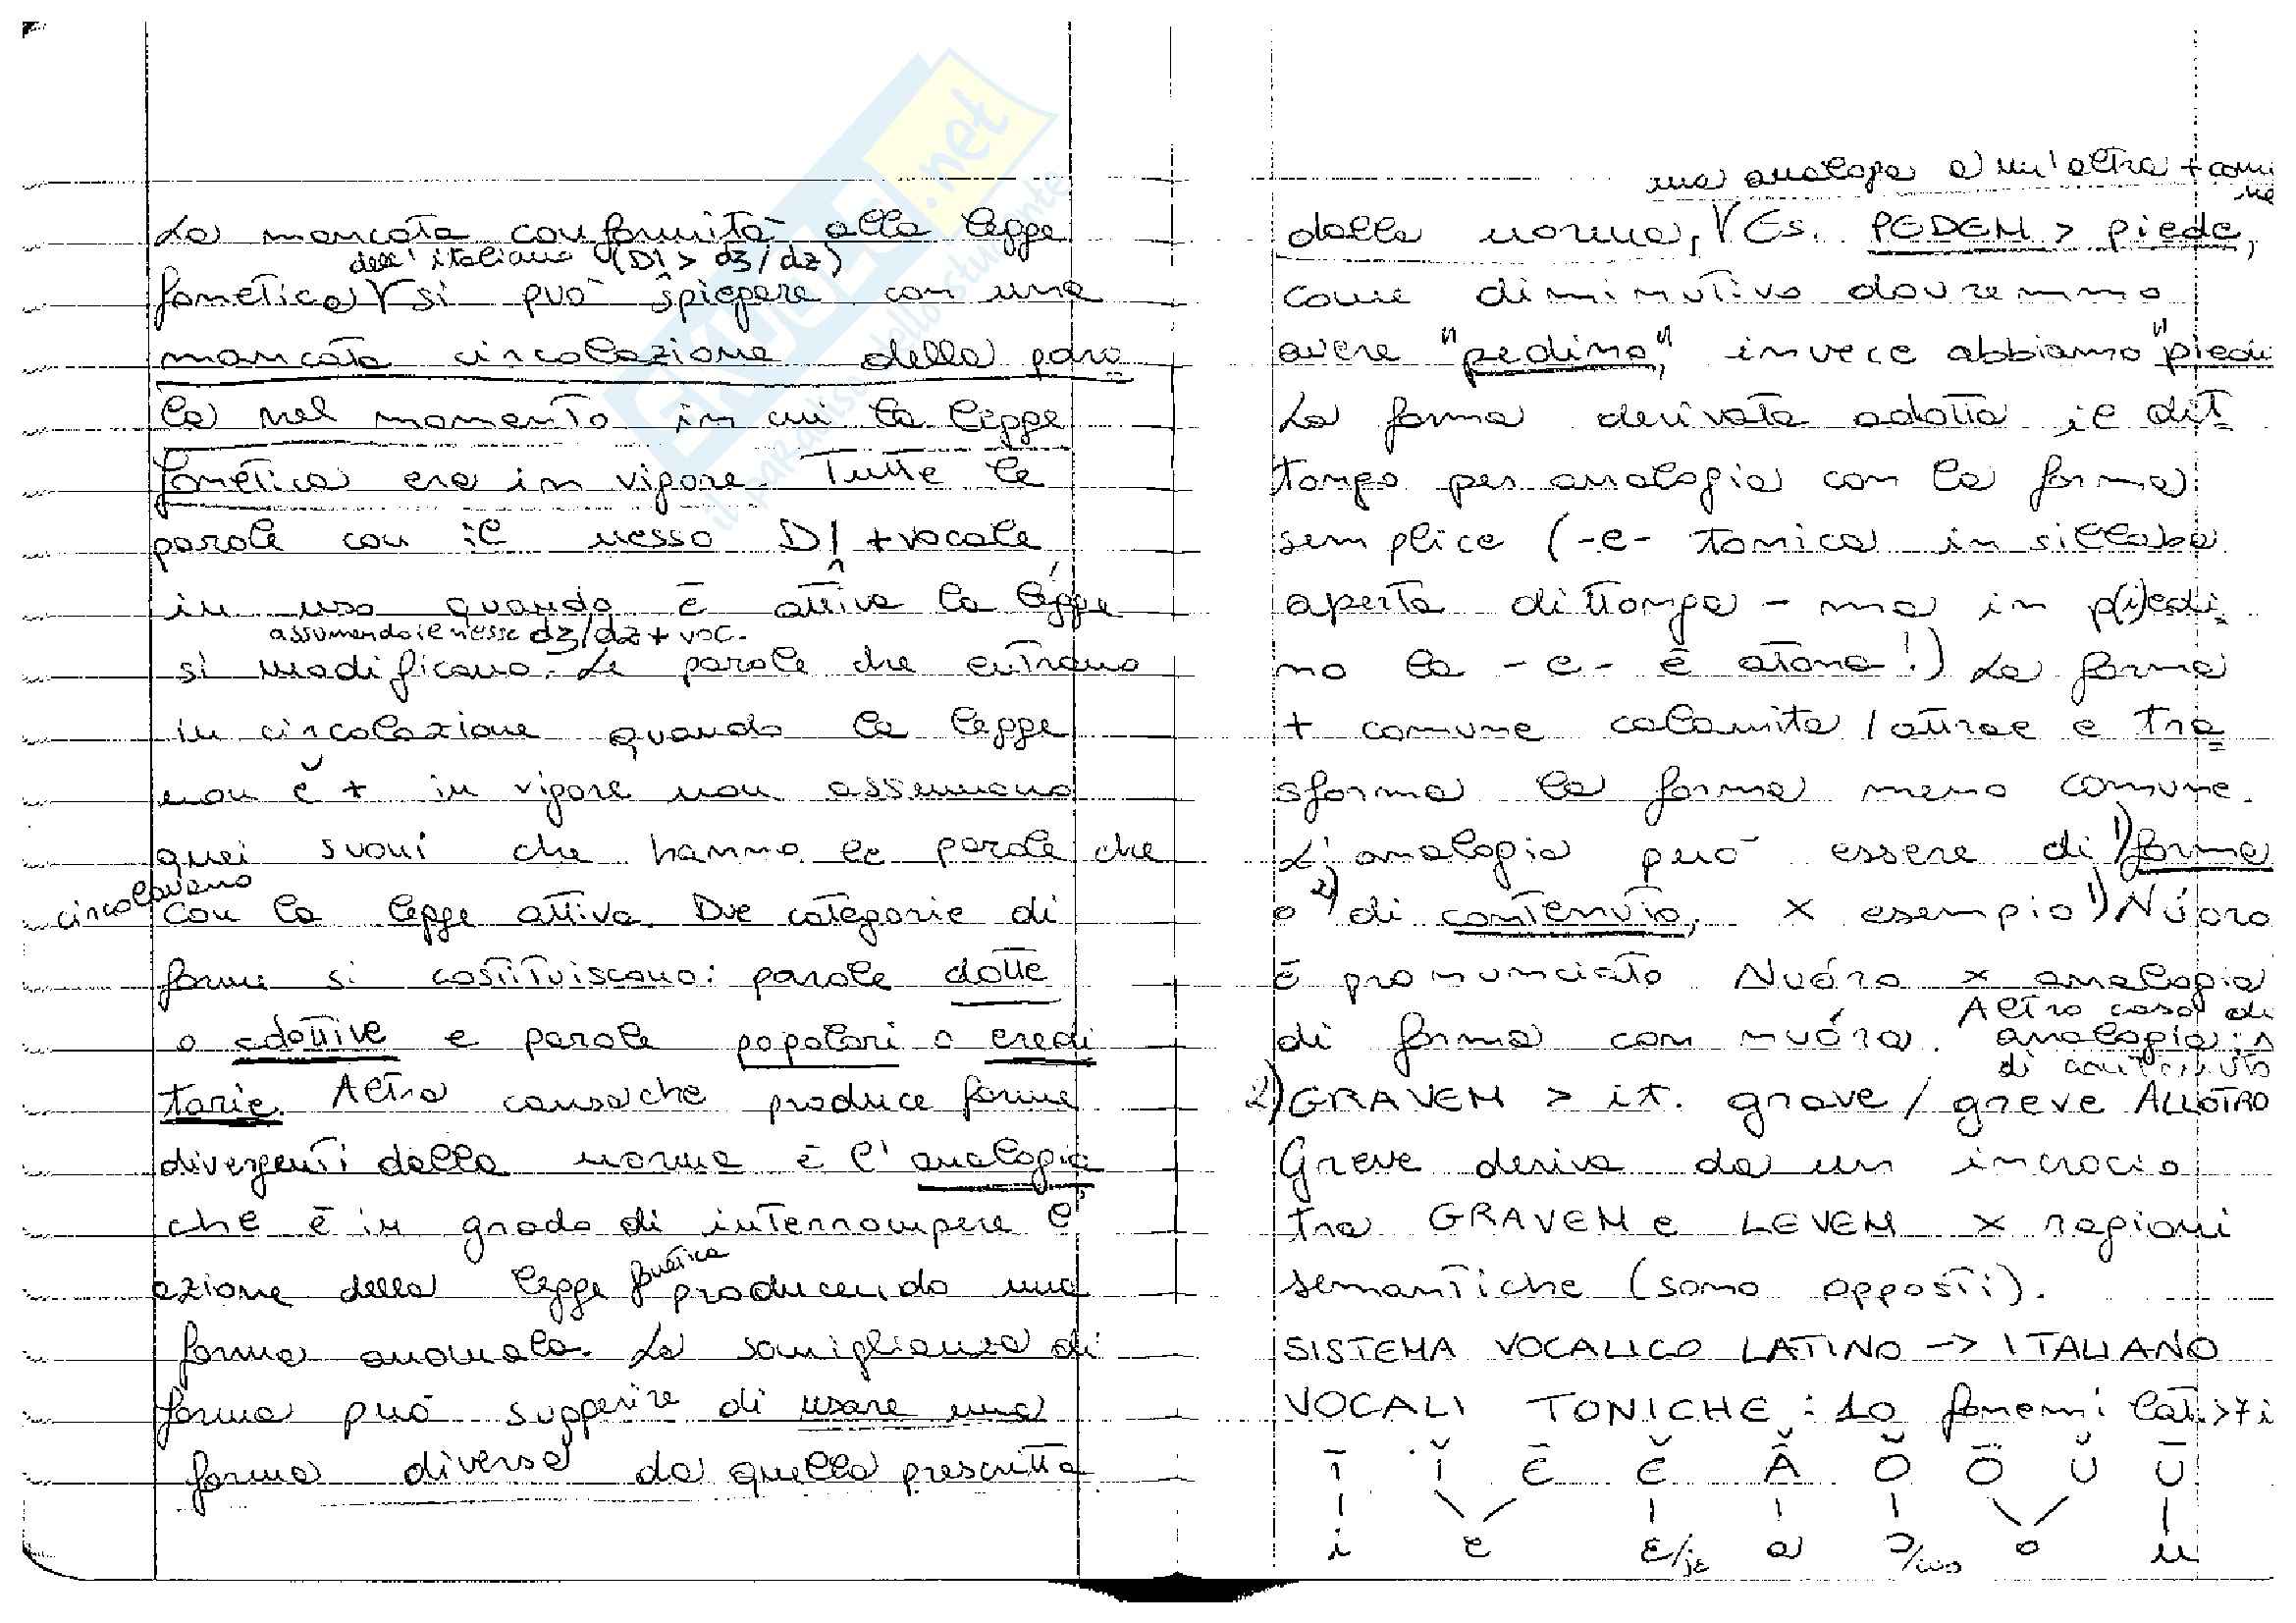 La mancata conformità alla legge
dell'italiano (DI > dʒ/dz)
fonetica si può spiegare con una
mancata circolazione della paro
la nel momento in cui la legge
fonetica era in vigore. Tutte le
parole con il nesso DI + vocale
in uso quando è attiva la legge
assumendo il nesso dʒ/dz + voc.
si modificano. Le parole che entrano
in circolazione quando la legge
non è + in vigore non assumono
quei suoni che hanno le parole che
circolavano
con la legge attiva. Due categorie di
forme si costituiscono: parole dotte
o adottive e parole popolari o eredi
tarie. Altra causa che produce forme
divergenti dalla norma è l'analogia
che è in grado di interrompere l'
azione della legge fonetica producendo una
forma anomala. La somiglianza di
forma può suggerire di usare una
forma diversa da quella prescritta
una analoga a un'altra + comu
ne
dalla norma, Es. PEDEM > piede,
come diminutivo dovremmo
avere "pedino", invece abbiamo "piedi
La forma derivata adotta il dit
tongo per analogia con la forma
semplice (-e- tonica in sillaba
aperta dittonga - ma in p(i)edi=
no la -e- è atona!) La forma
+ comune calamita / attrae e tra=
sforma la forma meno comune.
L'analogia può essere di 1) forma
o 2) di contenuto, x esempio 1) Núoro
è pronunciato Nuóro x analogia
di forma con nuóra. Altro caso di
analogia:
di contenuto
2) GRAVEM > it. grave / greve ALLOTRO
Greve deriva da un incrocio
tra GRAVEM e LEVEM x ragioni
semantiche (sono opposti).
SISTEMA VOCALICO LATINO -> ITALIANO
VOCALI TONICHE: 10 fonemi lat. > 7 i
Ī Ĭ Ē Ĕ Ā̆ Ŏ Ō Ŭ Ū
i e ɛ/jɛ a ɔ/wɔ o u
SKUOLA.net
il paradiso dello studente